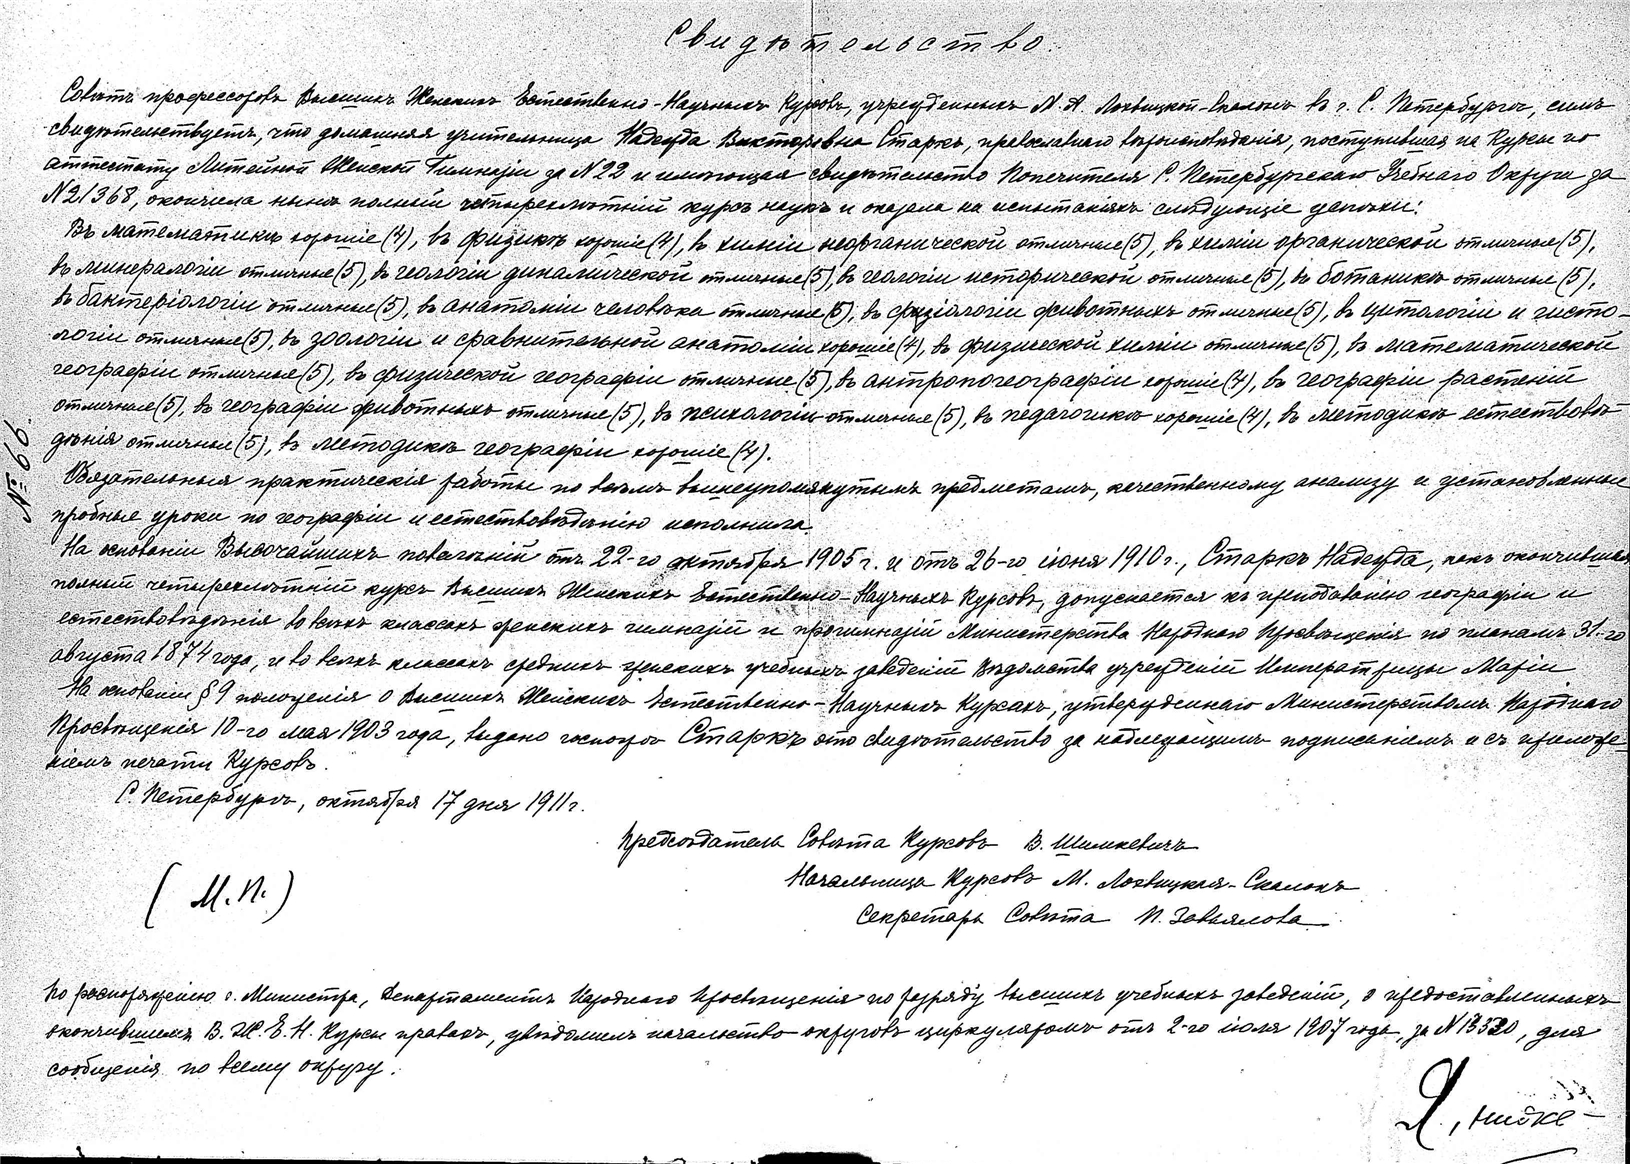 Свидѣтельство.
Совѣтъ профессоровъ Высшихъ Женскихъ Естественно-Научныхъ Курсовъ, учрежденныхъ М. А. Лохвицкой-Скалонъ въ г. С. Петербургѣ, симъ
свидѣтельствуетъ, что домашняя учительница Надежда Викторовна Старкъ, православнаго вѣроисповѣданія, поступившая на Курсы по
аттестату Литейной Женской Гимназіи за N 22 и имѣющая свидѣтельство Попечителя С. Петербургскаго Учебнаго Округа за
N 21368, окончила нынѣ полный четырехлѣтній курсъ наукъ и оказала на испытаніяхъ слѣдующіе успѣхи:
Въ математикѣ хорошіе (4), въ физикѣ хорошіе (4), въ химіи неорганической отличные (5), въ химіи органической отличные (5),
въ минералогіи отличные (5), въ геологіи динамической отличные (5), въ геологіи исторической отличные (5), въ ботаникѣ отличные (5),
въ бактеріологіи отличные (5), въ анатоміи человѣка отличные (5), въ физіологіи животныхъ отличные (5), въ цитологіи и гисто-
логіи отличные (5), въ зоологіи и сравнительной анатоміи хорошіе (4), въ физической химіи отличные (5), въ математической
географіи отличные (5), въ физической географіи отличные (5), въ антропогеографіи хорошіе (4), въ географіи растеній
отличные (5), въ географіи животныхъ отличные (5), въ психологіи отличные (5), въ педагогикѣ хорошіе (4), въ методикѣ естествовѣ-
дѣнія отличные (5), въ методикѣ географіи хорошіе (4).
№ 66.
Обязательныя практическія работы по всѣмъ вышеупомянутымъ предметамъ, качественному анализу и установленные
пробные уроки по географіи и естествовѣдѣнію исполнила.
На основаніи Высочайшихъ повелѣній отъ 22-го октября 1905 г. и отъ 26-го іюня 1910 г., Старкъ Надежда, какъ окончившая
полный четырехлѣтній курсъ Высшихъ Женскихъ Естественно-Научныхъ Курсовъ, допускается къ преподаванію географіи и
естествовѣдѣнія во всѣхъ классахъ женскихъ гимназій и прогимназій Министерства Народнаго Просвѣщенія по планамъ 31-го
августа 1874 года, и во всѣхъ классахъ среднихъ женскихъ учебныхъ заведеній Вѣдомства учрежденій Императрицы Маріи
На основаніи § 9 положенія о Высшихъ Женскихъ Естественно-Научныхъ Курсахъ, утвержденнаго Министерствомъ Народнаго
Просвѣщенія 10-го мая 1903 года, выдано госпожѣ Старкъ это свидѣтельство за надлежащимъ подписаніемъ и съ приложе-
ніемъ печати Курсовъ.
С. Петербургъ, октября 17 дня 1911 г.
Предсѣдатель Совѣта Курсовъ В. Шимкевичъ
Начальница Курсовъ М. Лохвицкая-Скалонъ
Секретарь Совѣта П. Завьялова.
(М. П.)
По распоряженію г. Министра, Департаментъ Народнаго Просвѣщенія по разряду высшихъ учебныхъ заведеній, о предоставленныхъ
окончившимъ В. Ж. Е. Н. Курсы правахъ, увѣдомилъ начальство округовъ циркуляромъ отъ 2-го іюля 1907 года, за N 13320, для
сообщенія по всему округу.
Я, ниже-